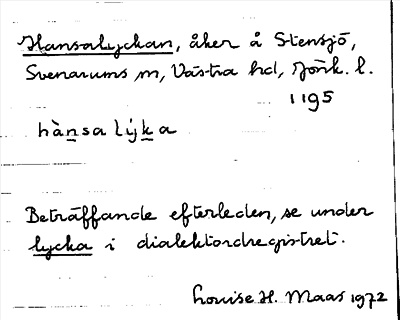 Hansalyckan, åker å Stensjö,
Svenarums sn, Västra hd, Jönk. l.
1195
hànsa lýka
Beträffande efterleden, se under
lycka i dialektordregistret.
Louise H. Maas 1972